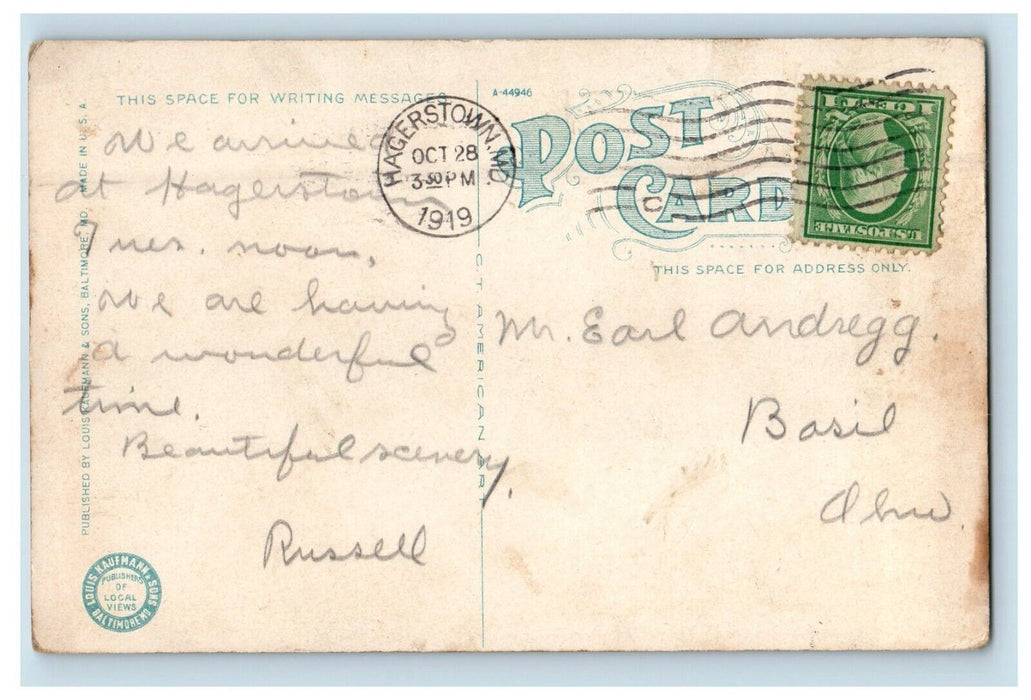 THIS SPACE FOR WRITING MESSAGES
A-44946
POST
CARD
HAGERSTOWN, MD.
OCT 28
3 30 PM
1919
U.S. POSTAGE
1 CENT 1
THIS SPACE FOR ADDRESS ONLY.
We arrived
at Hagerstown
Tues. noon,
We are having
a wonderful
time.
Beautiful scenery,
Russell
Mr. Earl Andregg.
Basil
Ohio.
PUBLISHED BY LOUIS KAUFMANN & SONS, BALTIMORE, MD. MADE IN U. S. A.
C. T. AMERICAN ART
LOUIS KAUFMANN & SONS
PUBLISHERS
OF
LOCAL
VIEWS
BALTIMORE MD